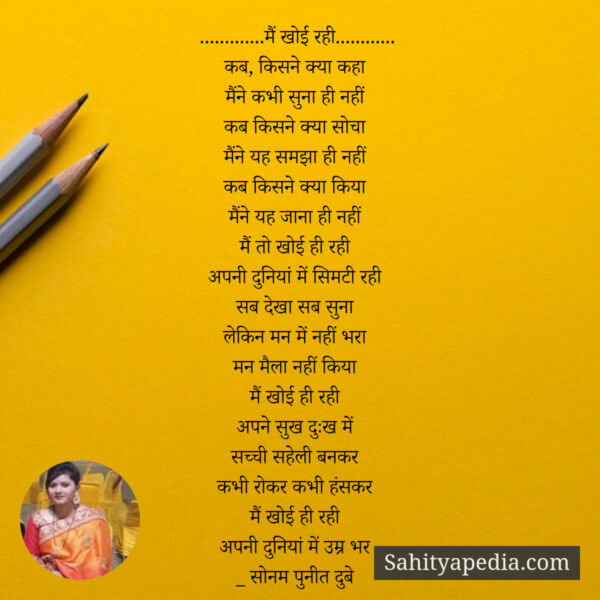 .............मैं खोई रही............
कब, किसने क्या कहा
मैंने कभी सुना ही नहीं
कब किसने क्या सोचा
मैंने यह समझा ही नहीं
कब किसने क्या किया
मैंने यह जाना ही नहीं
मैं तो खोई ही रही
अपनी दुनियां में सिमटी रही
सब देखा सब सुना
लेकिन मन में नहीं भरा
मन मैला नहीं किया
मैं खोई ही रही
अपने सुख दु:ख में
सच्ची सहेली बनकर
कभी रोकर कभी हंसकर
मैं खोई ही रही
अपनी दुनियां में उम्र भर
_ सोनम पुनीत दुबे
Sahityapedia.com